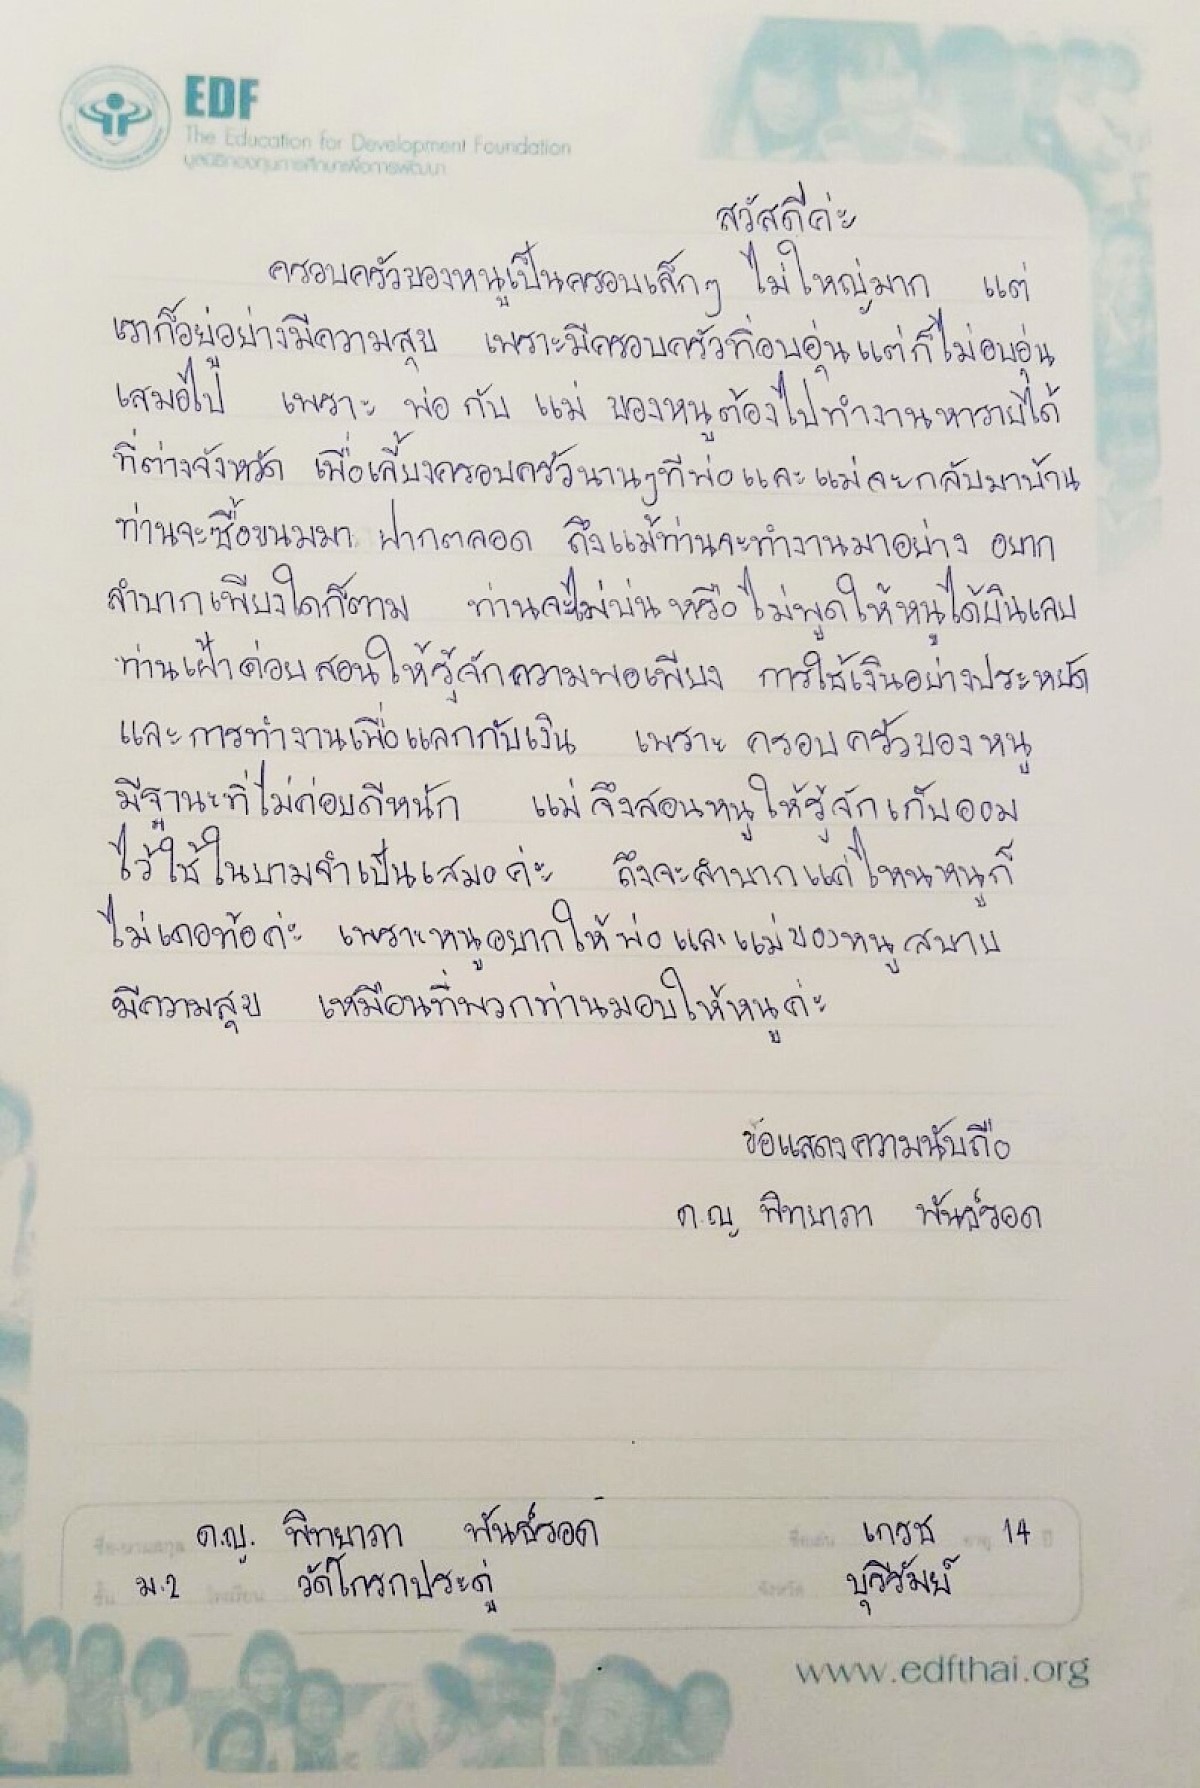 EDF
The Education for Development Foundation
มูลนิธิกองทุนการศึกษาเพื่อการพัฒนา
สวัสดีค่ะ
ครอบครัวของหนูเป็นครอบเล็กๆ ไม่ใหญ่มาก แต่
เราก็อยู่อย่างมีความสุข เพราะมีครอบครัวที่อบอุ่นแต่ก็ไม่อบอุ่น
เสมอไป เพราะ พ่อ กับ แม่ ของหนูต้องไปทำงานหารายได้
ที่ต่างจังหวัด เพื่อเลี้ยงครอบครัวนานๆทีพ่อและแม่จะกลับมาบ้าน
ท่านจะซื้อขนมมา ฝากตลอด ถึงแม้ท่านจะทำงานมาอย่าง อยาก
ลำบากเพียงใดก็ตาม ท่านจะไม่บ่นหรือไม่พูดให้หนูได้ยินเลย
ท่านเฝ้าค่อยสอนให้รู้จักความพอเพียง การใช้เงินอย่างประหยัด
และการทำงานเพื่อแลกกับเงิน เพราะ ครอบครัวของหนู
มีฐานะที่ไม่ค่อยดีหนัก แม่จึงสอนหนูให้รู้จักเก็บออม
ไว้ใช้ในยามจำเป็นเสมอค่ะ ถึงจะลำบากแค่ไหนหนูก็
ไม่เคอท้อค่ะ เพราะหนูอยากให้พ่อและแม่ของหนูสบาย
มีความสุข เหมือนที่พวกท่านมอบให้หนูค่ะ
ข้อแสดงความนับถือ
ด.ญ พิทยาภา พันธ์รอด
ชื่อ-นามสกุล ด.ญ. พิทยาภา พันธ์รอด ชื่อเล่น เกรซ อายุ 14 ปี
ชั้น ม.2 โรงเรียน วัดโกรกประดู่ จังหวัด บุรีรัมย์
www.edfthai.org